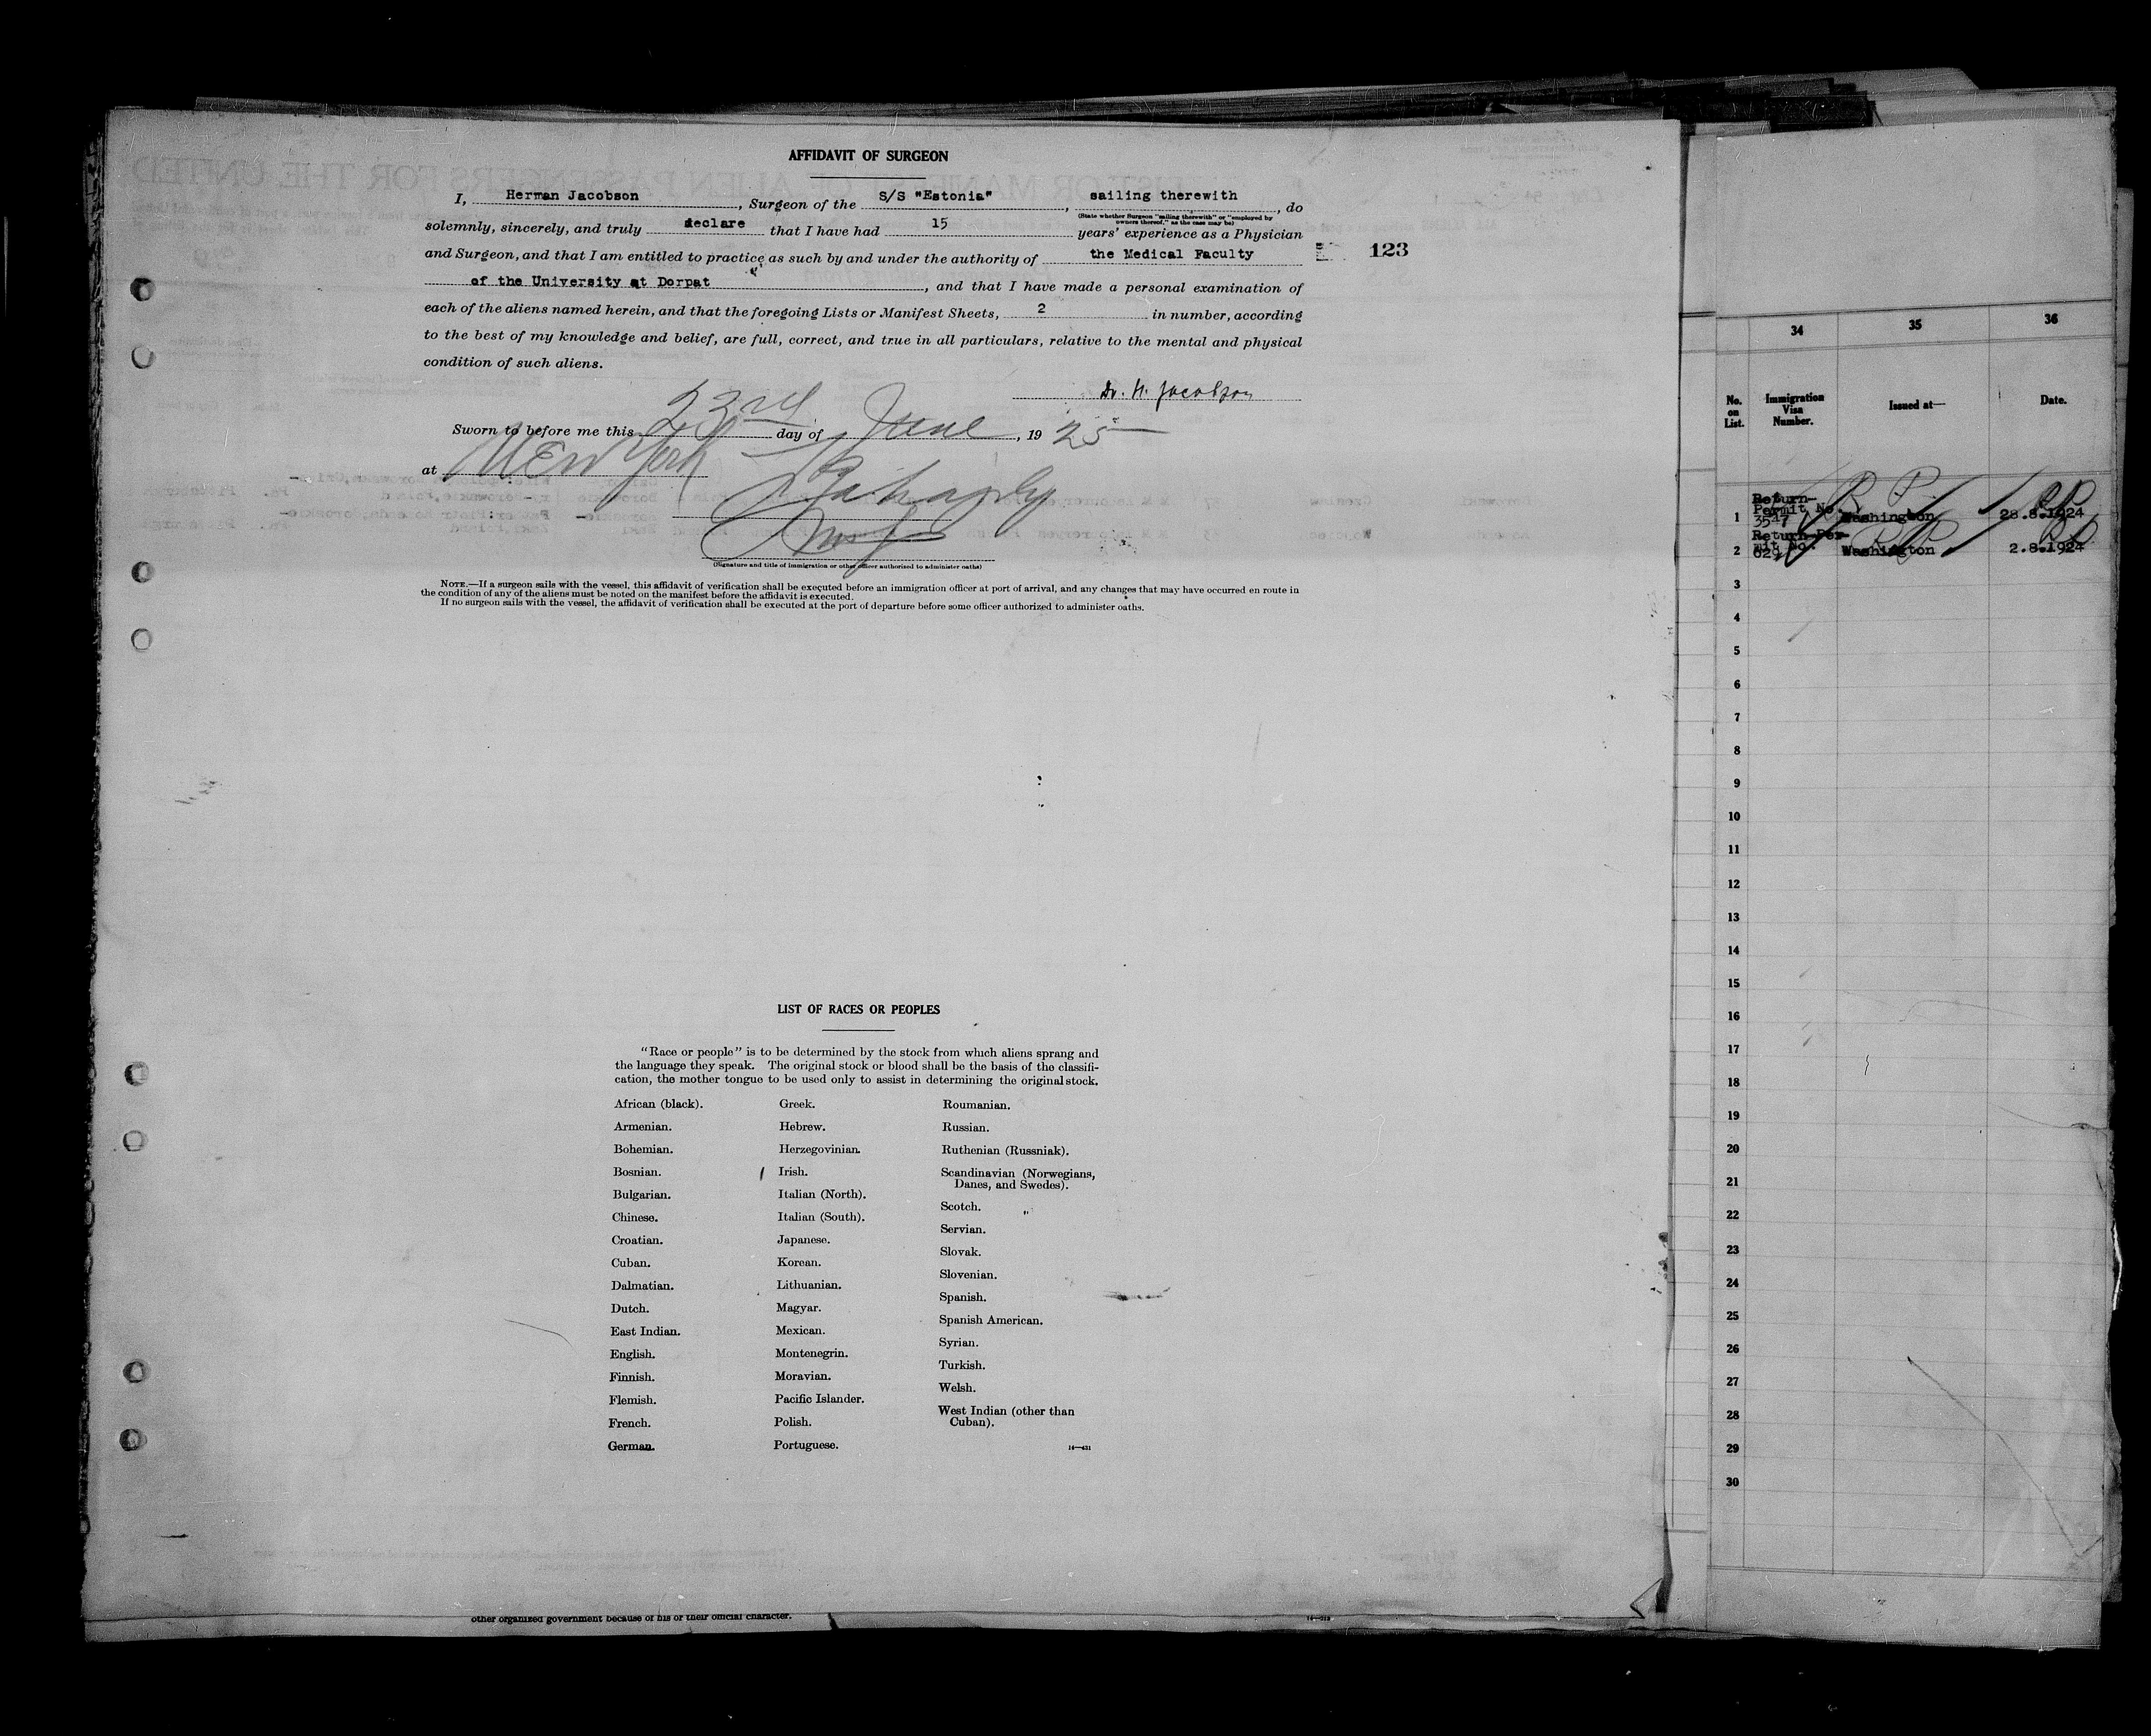 AFFIDAVIT OF SURGEON
I, Herman Jacobson, Surgeon of the S/S "Estonia", sailing therewith, do
(State whether Surgeon "sailing therewith" or "employed by
owners thereof," as the case may be)
solemnly, sincerely, and truly declare that I have had 15 years' experience as a Physician
and Surgeon, and that I am entitled to practice as such by and under the authority of the Medical Faculty
123
of the University at Dorpat, and that I have made a personal examination of
each of the aliens named herein, and that the foregoing Lists or Manifest Sheets, 2 in number, according
to the best of my knowledge and belief, are full, correct, and true in all particulars, relative to the mental and physical
condition of such aliens.
Dr. H. Jacobson
Sworn to before me this 23rd day of June, 1925
at New York
(Signature and title of immigration or other officer authorized to administer oaths)
NOTE.—If a surgeon sails with the vessel, this affidavit of verification shall be executed before an immigration officer at port of arrival, and any changes that may have occurred en route in
the condition of any of the aliens must be noted on the manifest before the affidavit is executed.
If no surgeon sails with the vessel, the affidavit of verification shall be executed at the port of departure before some officer authorized to administer oaths.
LIST OF RACES OR PEOPLES
"Race or people" is to be determined by the stock from which aliens sprang and
the language they speak. The original stock or blood shall be the basis of the classifi-
cation, the mother tongue to be used only to assist in determining the original stock.
African (black).
Armenian.
Bohemian.
Bosnian.
Bulgarian.
Chinese.
Croatian.
Cuban.
Dalmatian.
Dutch.
East Indian.
English.
Finnish.
Flemish.
French.
German.
Greek.
Hebrew.
Herzegovinian.
Irish.
Italian (North).
Italian (South).
Japanese.
Korean.
Lithuanian.
Magyar.
Mexican.
Montenegrin.
Moravian.
Pacific Islander.
Polish.
Portuguese.
Roumanian.
Russian.
Ruthenian (Russniak).
Scandinavian (Norwegians,
Danes, and Swedes).
Scotch.
Servian.
Slovak.
Slovenian.
Spanish.
Spanish American.
Syrian.
Turkish.
Welsh.
West Indian (other than
Cuban).
14—431
other organized government because of his or their official character.
34 35 36
No.
on
List.
Immigration
Visa
Number.
Issued at—
Date.
Return-
Permit No.
1 3547 Washington 28.8.1924
Return Per-
mit No.
2 Washington 2.8.1924
3
4
5
6
7
8
9
10
11
12
13
14
15
16
17
18
19
20
21
22
23
24
25
26
27
28
29
30